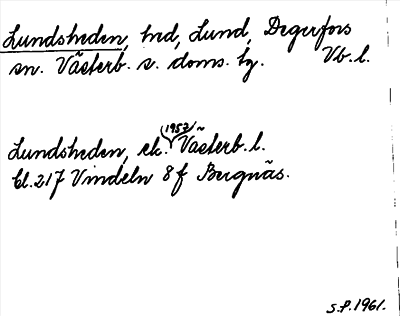 Lundsheden, hed, Lund, Degerfors
sn. Västerb. s. doms. tg. Vb. l.
Lundsheden, ek. (1957) Västerb. l.
bl. 217 Vindeln 8f Bergnäs.
S.P. 1961.